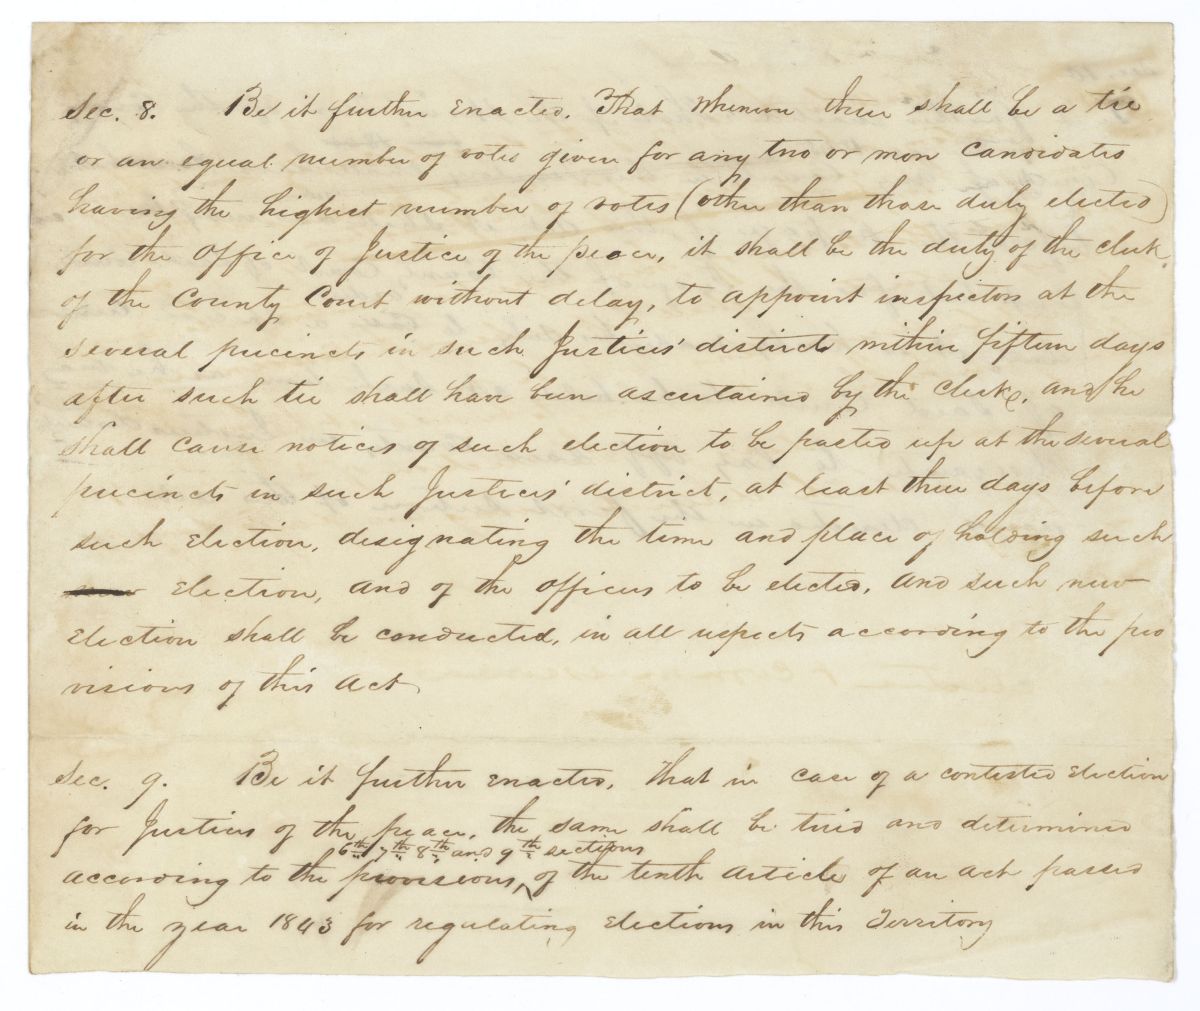 Sec. 8. Be it further enacted, That whenever there shall be a tie
or an equal number of votes given for any two or more candidates
having the highest number of votes (other than those duly elected)
for the Office of Justice of the peace, it shall be the duty of the clerk,
of the County Court without delay, to appoint inspectors at the
several precincts in such Justices' districts within fifteen days
after such tie shall have been ascertained by the clerk, and he
shall cause notices of such election to be pasted up at the several
precincts in such Justices' district, at least three days before
such election, designating the time and place of holding such
election, and of the officers to be elected, and such new
election shall be conducted, in all respects according to the pro
visions of this act
Sec. 9. Be it further enacted, That in case of a contested election
for Justices of the peace, the same shall be tried and determined
6th 7th 8th and 9th sections
according to the provisions, of the tenth article of an act passed
in the year 1843 for regulating elections in this Territory